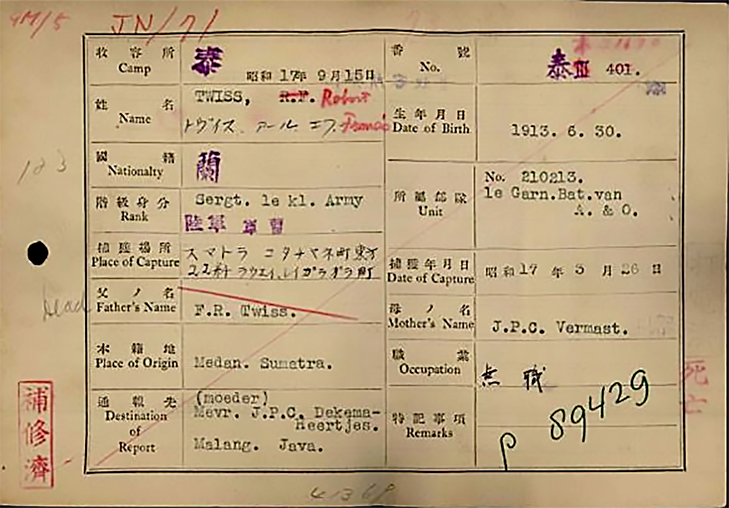 JN/71
收容所
Camp
泰
昭和 17年 9月15日
番號
No.
泰III 401.
姓名
Name
TWISS, R.F. Robert
Francis
トウイス アール エフ
生年月日
Date of Birth
1913. 6. 30.
國籍
Nationalty
蘭
123
階級身分
Rank
Sergt. 1e kl. Army
陸軍 軍曹
所屬部隊
Unit
No. 210213.
1e Garn.Bat.van
A. & O.
捕獲場所
Place of Capture
スマトラ コタチヤネ町東方
捕獲年月日
Date of Capture
昭和 17 年 3 月 26 日
dead
父ノ名
Father's Name
F.R. Twiss.
母ノ名
Mother's Name
J.P.C. Vermast.
本籍地
Place of Origin
Medan. Sumatra.
職業
Occupation
無職
死亡
補修濟
通報先
Destination
of
Report
(moeder)
Mevr. J.P.C. Dekema-
Heertjes.
Malang. Java.
特記事項
Remarks
P 89429